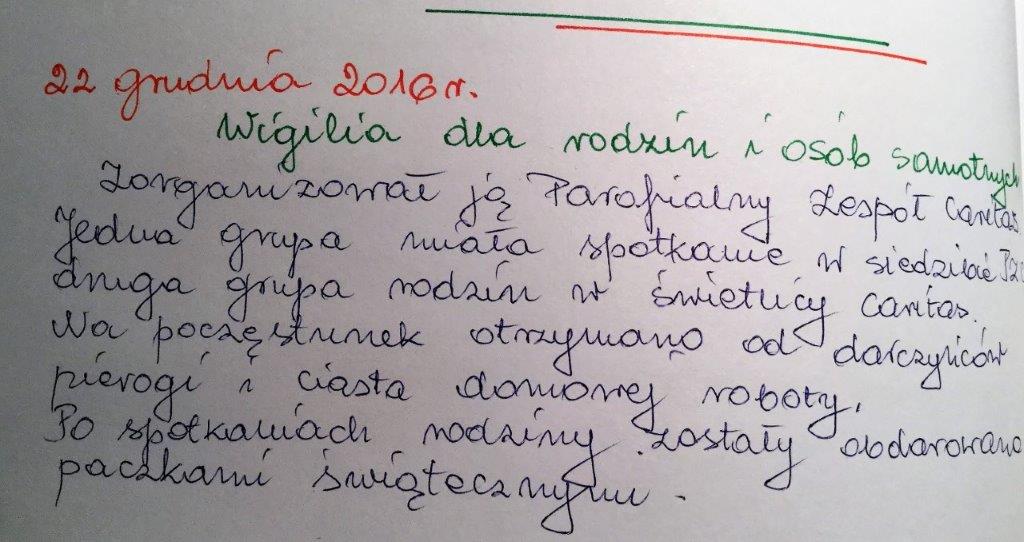 22 grudnia 2016 r.
Wigilia dla rodzin i osób samotnych
Zorganizował ją Parafialny Zespół Caritas
Jedna grupa miała spotkanie w siedzibie
druga grupa rodzin w świetlicy Caritas.
Na poczęstunek otrzymano od darczyńców
pierogi i ciasta domowej roboty.
Po spotkaniach rodziny zostały obdarowano
paczkami świątecznymi.